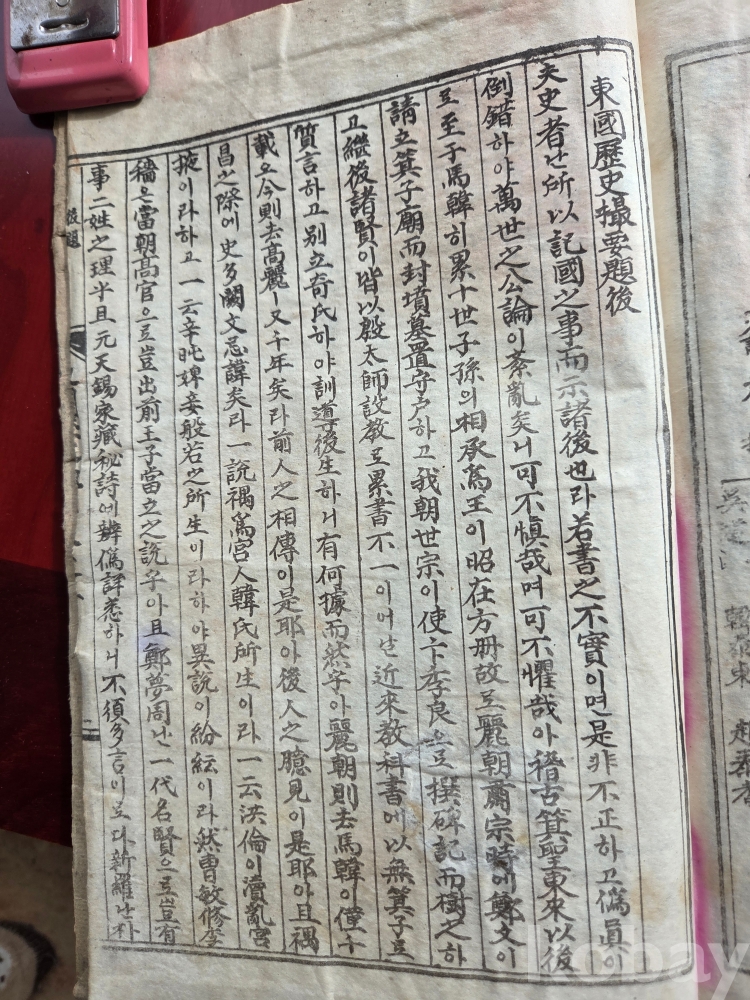 東國歷史撮要題後
夫史者난所以記國之事而示諸後也라若書之不實이면是非不正하고僞眞이
倒錯하야萬世之公論이紊亂矣니可不愼哉며可不懼哉아稽古箕聖東來以後
로至于馬韓히累十世子孫의相承爲王이昭在方册故로麗朝肅宗時에鄭文이
請立箕子廟而封墳墓置守户하고我朝世宗이使卞季良으로撰碑記而樹之하
고繼後諸賢이皆以殷太師設敎로累書不一이어날近來敎科書에以無箕子로
質言하고別立奇氏하야訓導後生하니有何據而然乎아麗朝則去馬韓이僅千
載오今則去高麗ㅣ又千年矣라前人之相傳이是耶아後人之臆見이是耶아且禑
昌之際에史多闕文忌諱矣라一說禑篤宮人韓氏所生이라一云洪倫이瀆亂宮
掖이라하고一云辛旽婢妾般若之所生이라하야異說이紛紜이라然曹敏修
穡은當朝高官으로豈出前王子當立之說乎아且鄭夢周난一代名賢으로豈有
事二姓之理乎且元天錫家藏秘詩에辨僞評悉하니不須多言이로다新羅난朴
後題
二
kobay